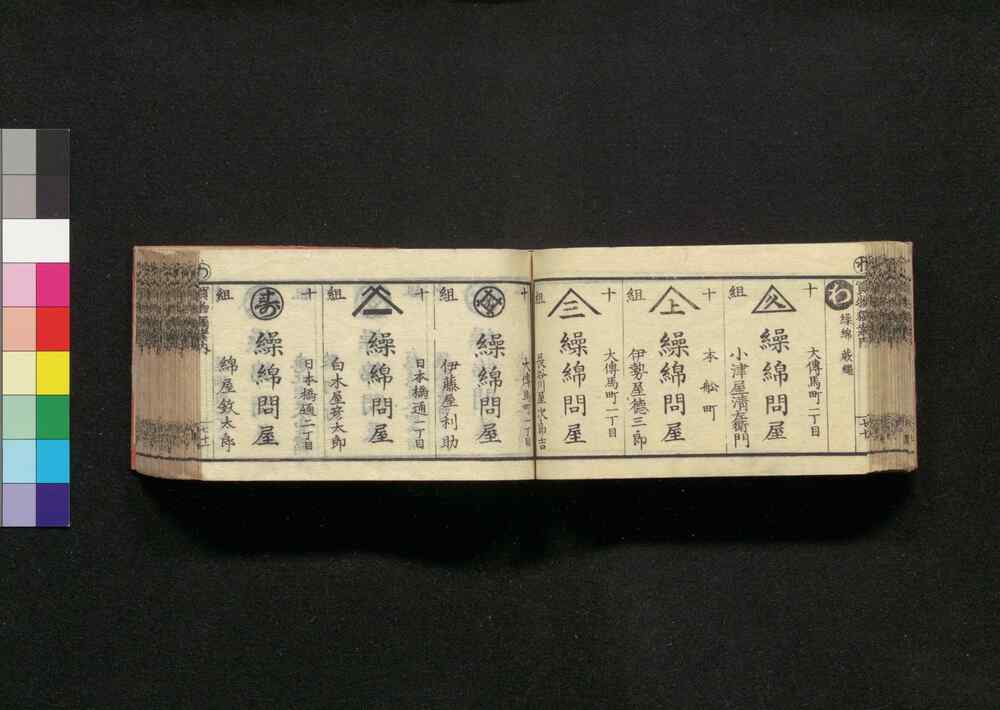 わ
繰綿
十
大傳馬町一丁目
久
繰綿問屋
組
小津屋清左衛門
十
本船町
上
繰綿問屋
組
伊勢屋德三郎
十
大傳馬町一丁目
三
繰綿問屋
組
十
大傳馬町一丁目
繰綿問屋
組
伊藤屋利助
十
日本橋通一丁目
繰綿問屋
組
白木屋彦太郎
十
日本橋通二丁目
寿
繰綿問屋
組
綿屋鈫太郎